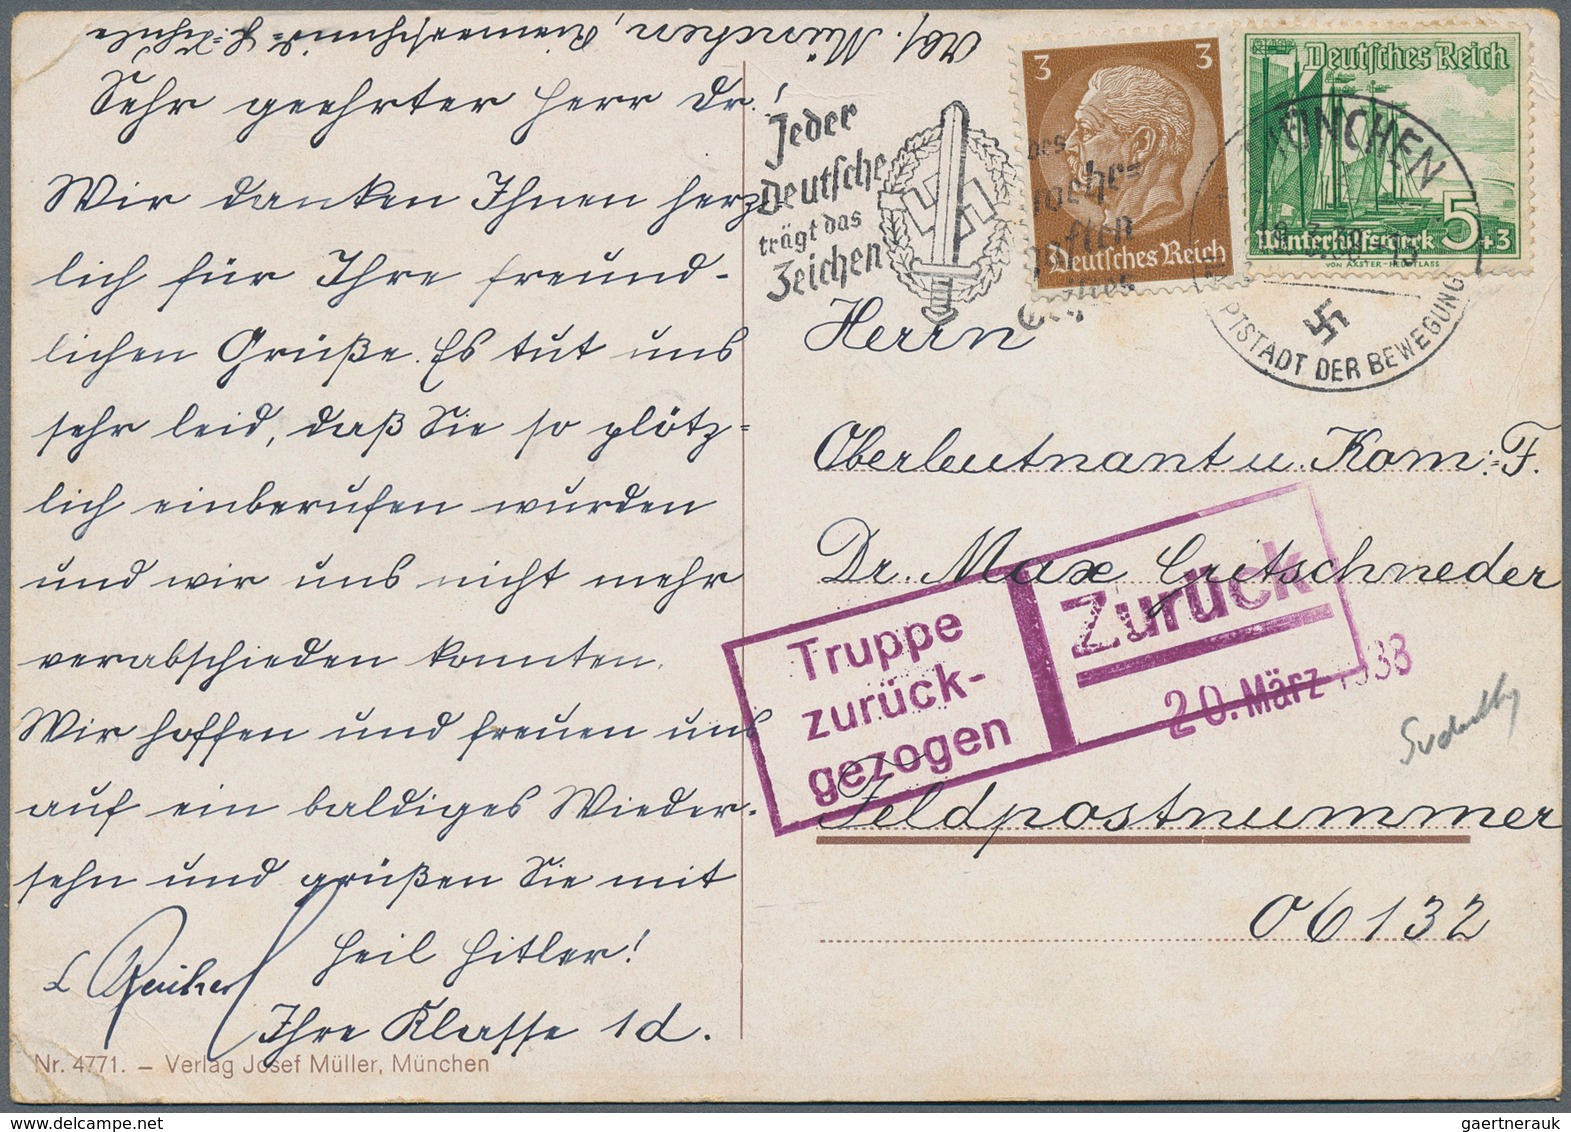 Abs. München, Riemerschmid-H.-Schule
Sehr geehrter Herr Dr.!
Wir danken Ihnen herz
lich für Ihre freund-
lichen Grüße. Es tut uns
sehr leid, daß Sie so plötz=
lich einberufen wurden
und wir uns nicht mehr
verabschieden konnten.
Wir hoffen und freuen uns
auf ein baldiges Wieder-
sehn und grüßen Sie mit
Heil Hitler!
Ihre Klasse 1d.
Nr. 4771. – Verlag Josef Müller, München
Jeder
Deutsche
trägt das
Zeichen
des
3 3
Deutsches Reich
Deutsches Reich
5+3
Winterhilfswerk
VON AXSTER-HEUDTLASS
MÜNCHEN
PTSTADT DER BEWEGUNG
Herrn
Oberleutnant u. Kom=F.
Dr. Max Gritschneder
Truppe
zurück-
gezogen
Zurück
20. März 1938
Feldpostnummer
06132
gaertnerauk